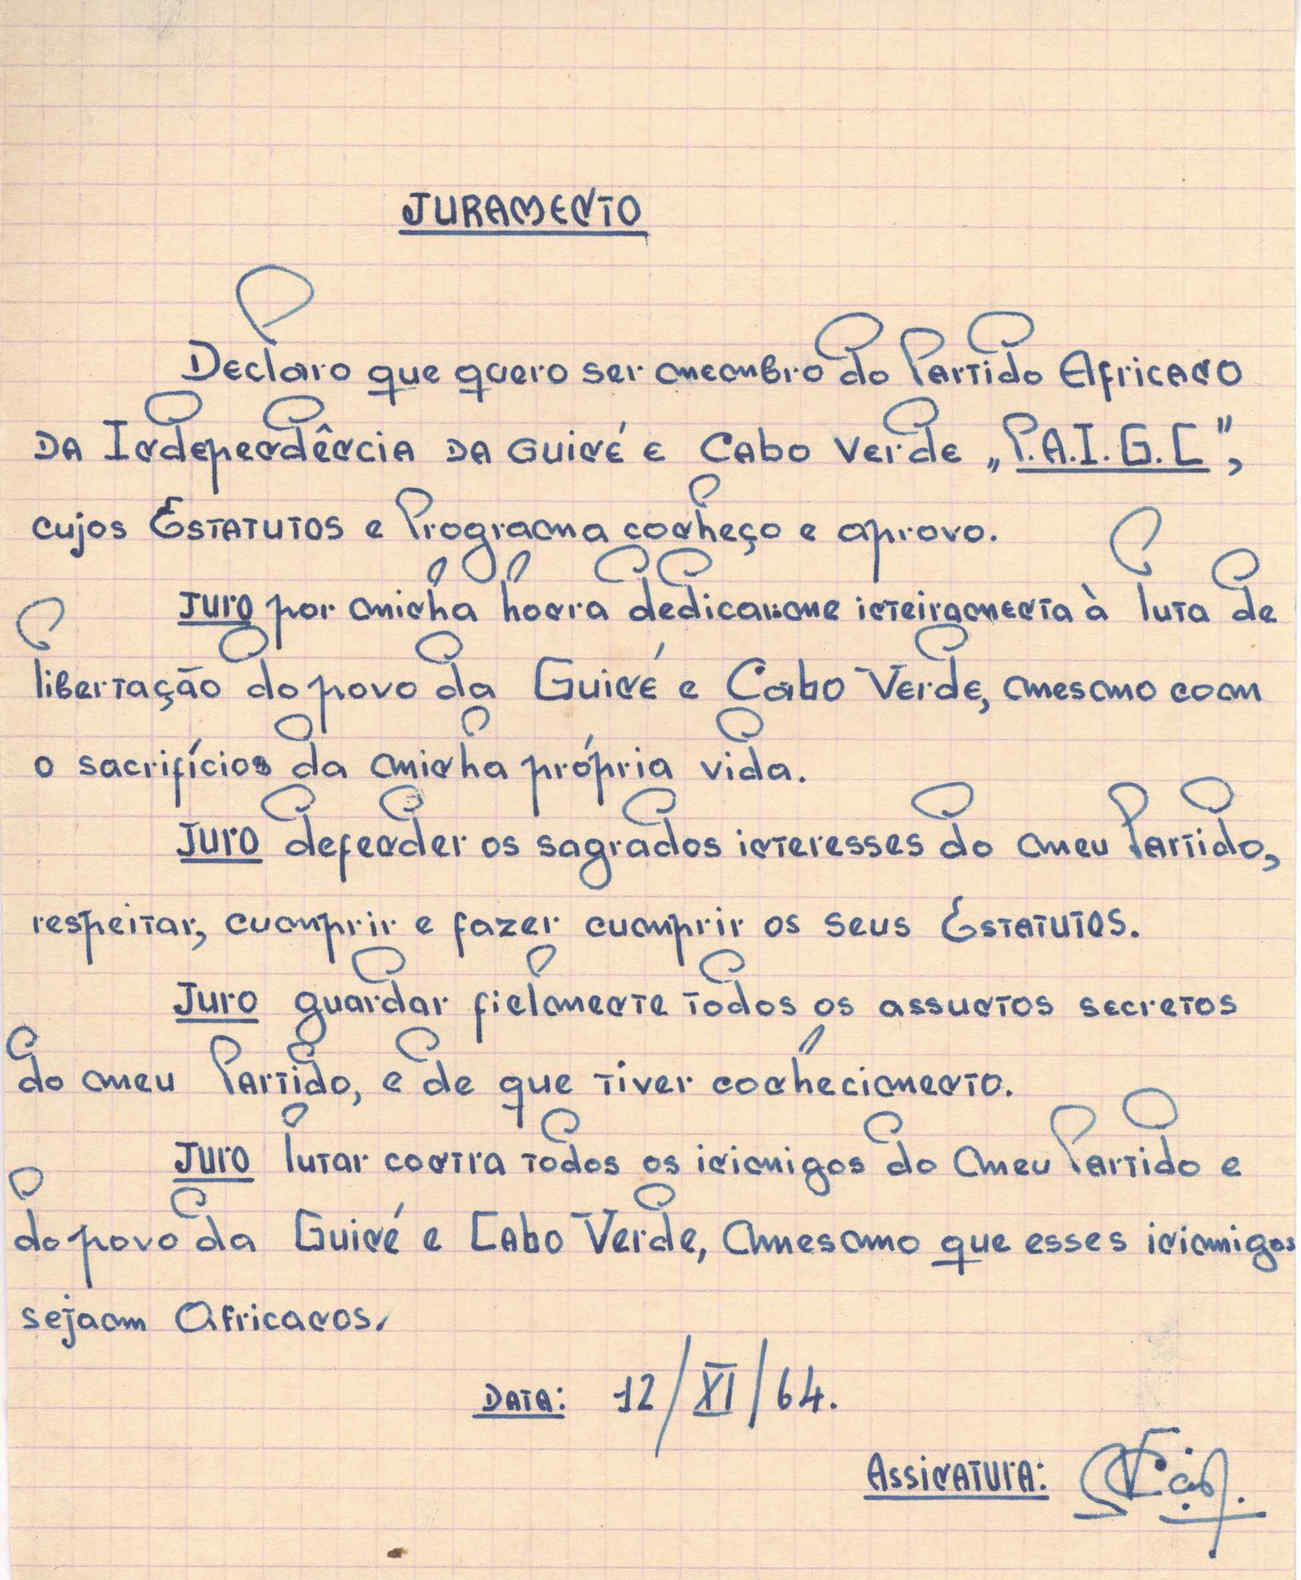 JURAMENTO
Declaro que quero ser membro do Partido Africano
DA Independência DA Guiné e Cabo Verde „P.A.I.G.C",
cujos Estatutos e Programa conheço e aprovo.
Juro por minha honra dedicar-me inteiramente à luta de
libertação do povo da Guiné e Cabo Verde, mesmo com
o sacrifícios da minha própria vida.
Juro defender os sagrados interesses do meu Partido,
respeitar, cumprir e fazer cumprir os seus Estatutos.
Juro guardar fielmente todos os assuntos secretos
do meu Partido, e de que tiver conhecimento.
Juro lutar contra todos os inimigos do meu Partido e
do povo da Guiné e Cabo Verde, mesmo que esses inimigos
sejam Africanos.
DATA: 12/XI/64.
Assinatura: